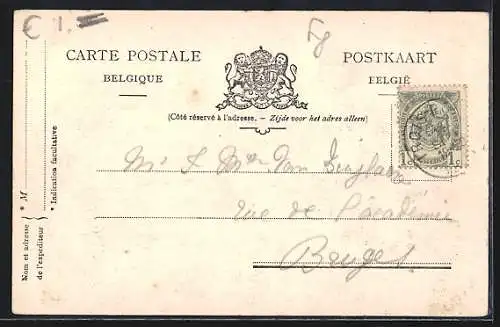 € 1.=
CARTE POSTALE
BELGIQUE
POSTKAART
BELGIË
(Côté réservé à l'adresse. – Zijde voor het adres alleen)
1c 1c
rue de l'académie
Bruges
* M
Nom et adresse
de l'expéditeur
* Indication facultative